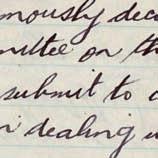 mously dec
mittee on th
submit to a
in dealing w